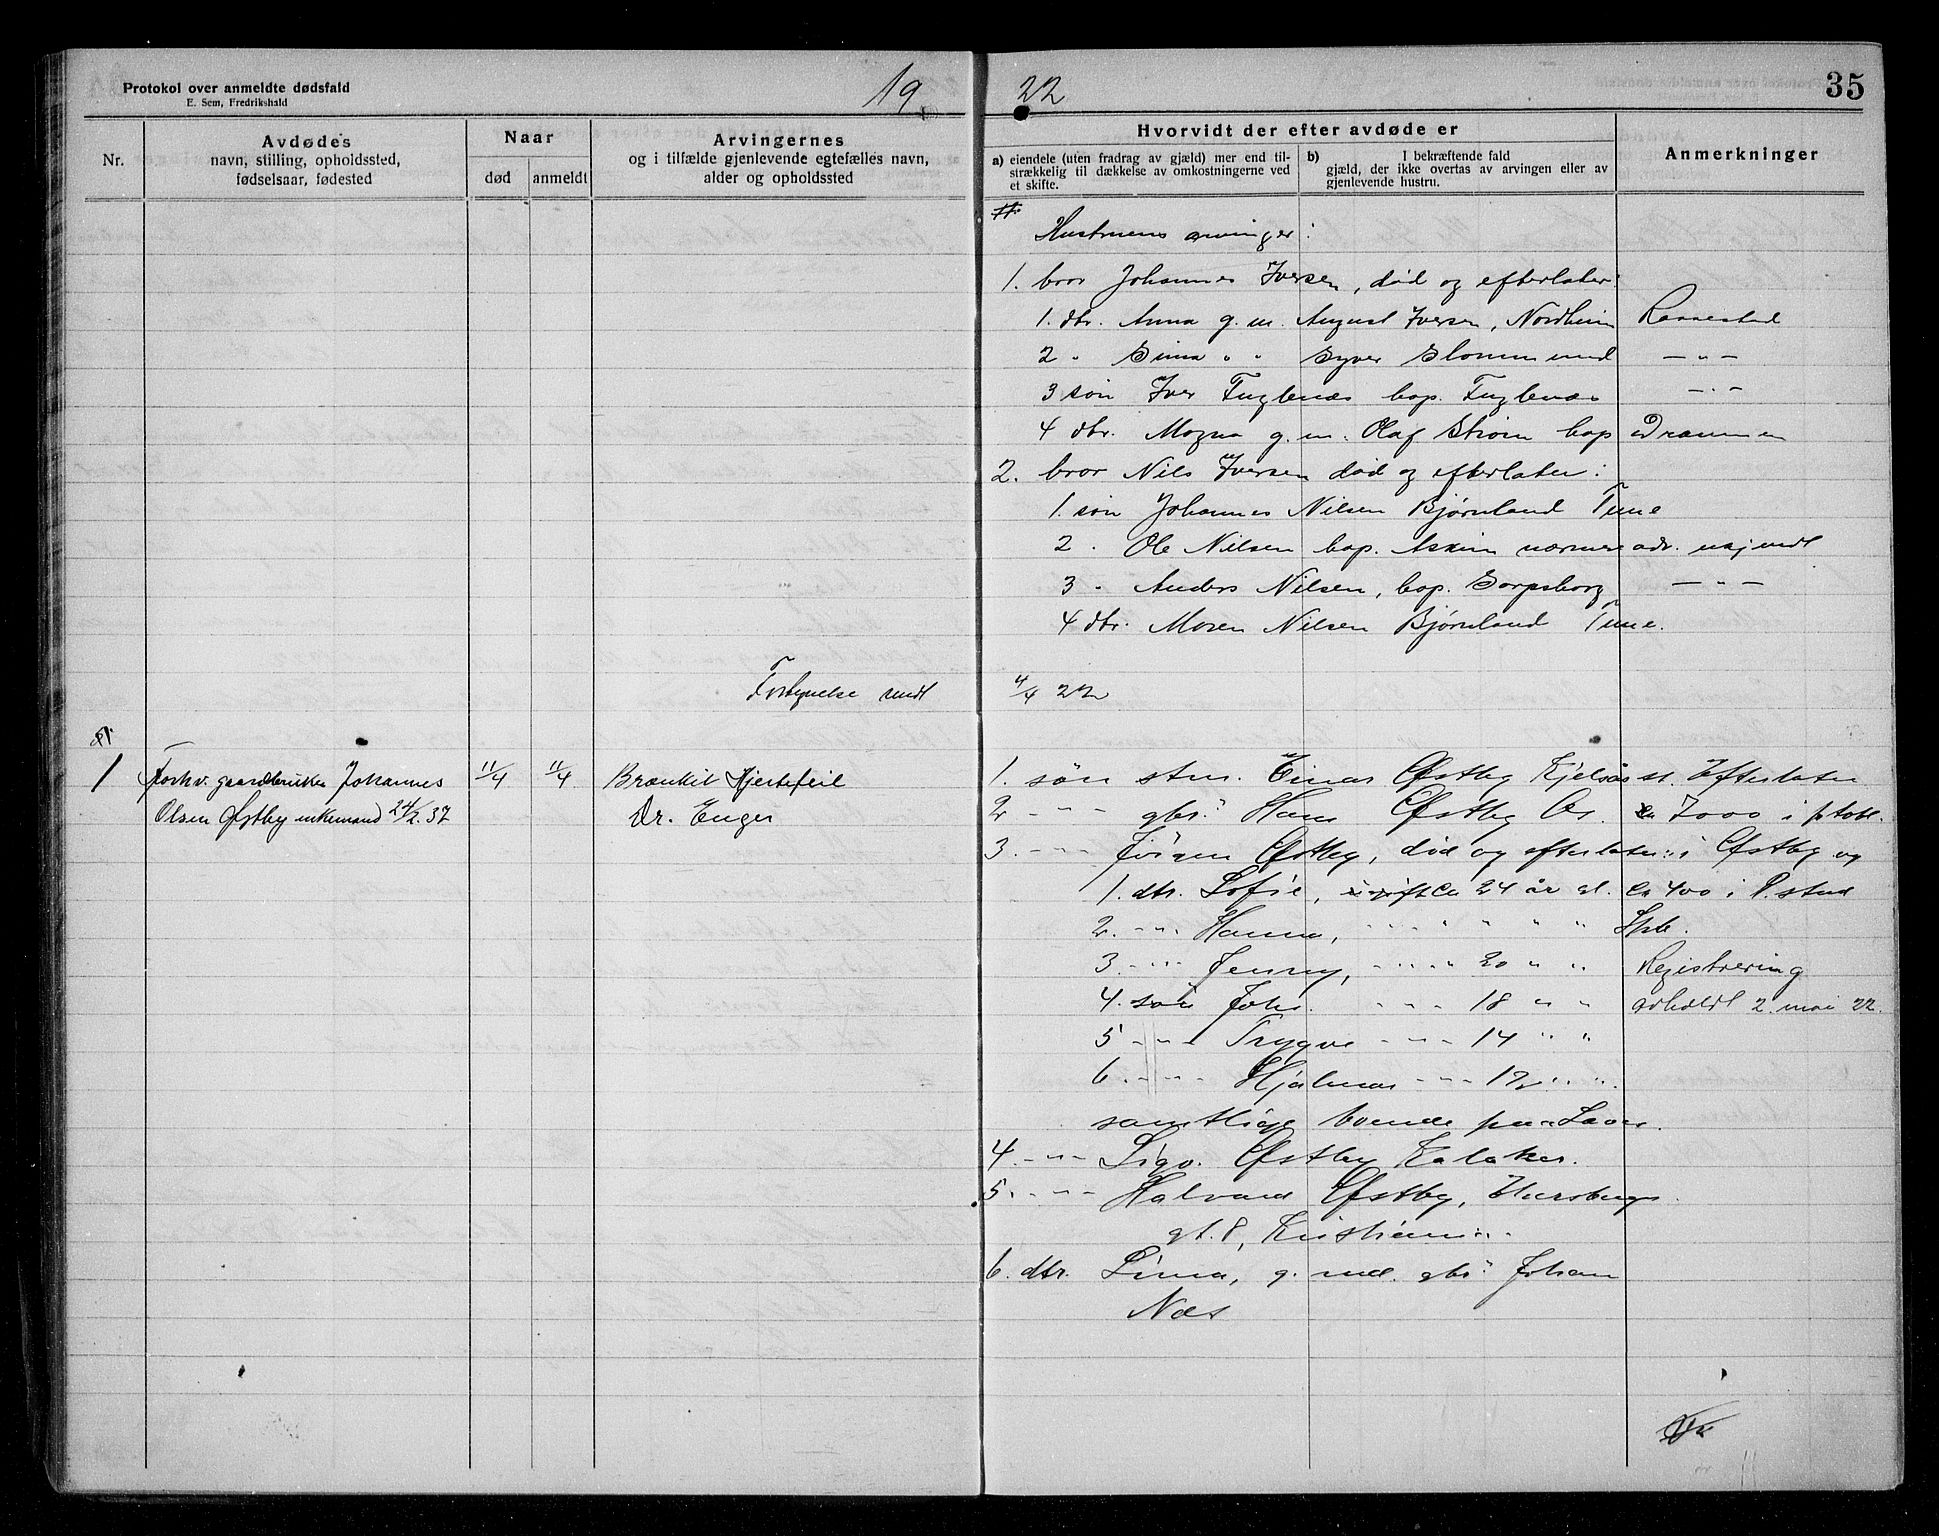 Protokol over anmeldte dødsfald
E. Sem, Fredrikshald
19
22
35
Nr.
Avdødes
navn, stilling, opholdssted,
fødselsaar, fødested
Naar
død
anmeldt
Arvingernes
og i tilfælde gjenlevende egtefælles navn,
alder og opholdssted
Hvorvidt der efter avdøde er
a) eiendele (uten fradrag av gjæld) mer end til-
strækkelig til dækkelse av omkostningerne ved
et skifte.
b) I bekræftende fald
gjæld, der ikke overtas av arvingen eller av
gjenlevende hustru.
Anmerkninger
Hustruens arvinger:
1. bror Johannes Iversen, død og efterlater:
1. dtr. Anna g. m. August Iversen, Nordheim
2 " Gina " " Syver Glommund — " —
3 søn Iver Fuglenæs bop. Fuglenæs — " —
4 dtr. Magna g. m. Olaf Strøm bop Drammen
2. bror Nils Iversen død og efterlater:
1. søn Johannes Nilsen Bjørnland Tune
2 " Ole Nilsen bop. Askim nærmere adr. ukjendt
3 " Anders Nilsen, bop. Sarpsborg — " —
4 dtr. Maren Nilsen Bjørnland Tune.
sendt 4/4 22
1 Forhv. gaardbruker Johannes 11/4 11/4 Brænkit Hjertefeil
Olsen Østby enkemand 24/2. 37 Dr. Enger
1. søn stm. Einar Østby Kjelsås st. Efterlater
2 - " - gbr. Hans Østby Os. ca 7000 i ptobl.
3. - " - Jörgen Østby, død og efterlater: i Østby og
1. dtr. Sofie, ugift ca 24 år gl. ca 400 i Ø. stad
2. - " - Hanna, " " " " " Spb.
3. - " - Jenny, - " - " - 20 " " Registrering
4. søn Johs. - " - 18 " " avholdt 2. mai 22.
5 - " - Trygve - " - 14 " "
6. - " - Hjalmar - " - 12 " "
samtlige boende paa
4. - " - Sigv. Østby
5. - " - Halvard Østby,
gt. 8, Kristiania.
6. dtr. Lina, g. med. gbr. Johan
Næs